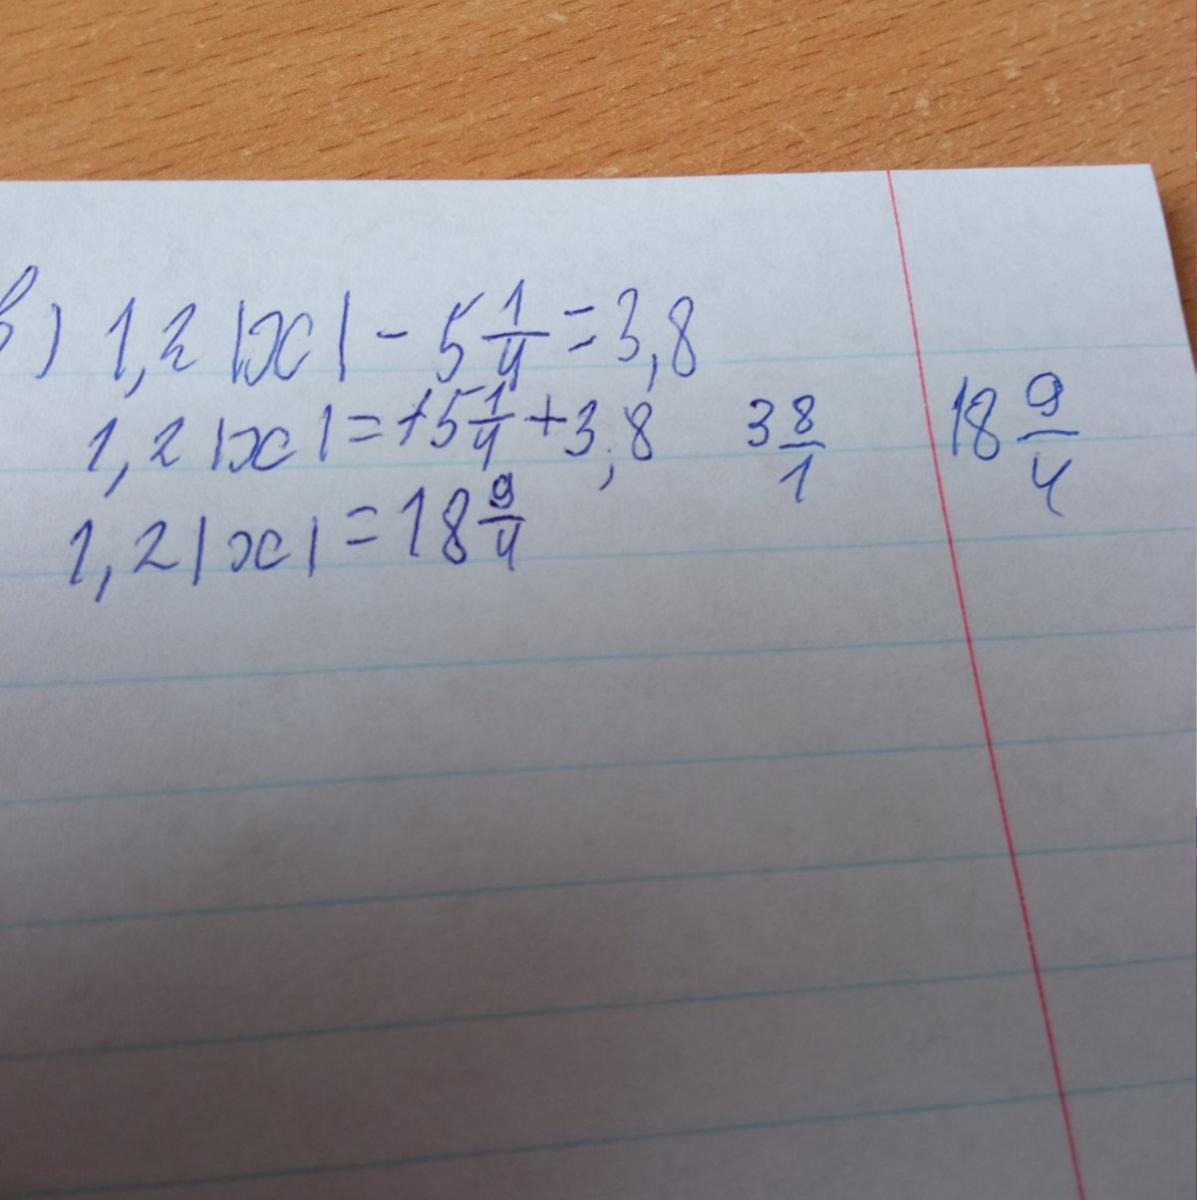 в) 1,2 |x| - 5 1/4 = 3,8
1,2 |x| = +5 1/4 + 3,8    3 8/1    18 9/4
1,2 |x| = 18 9/4